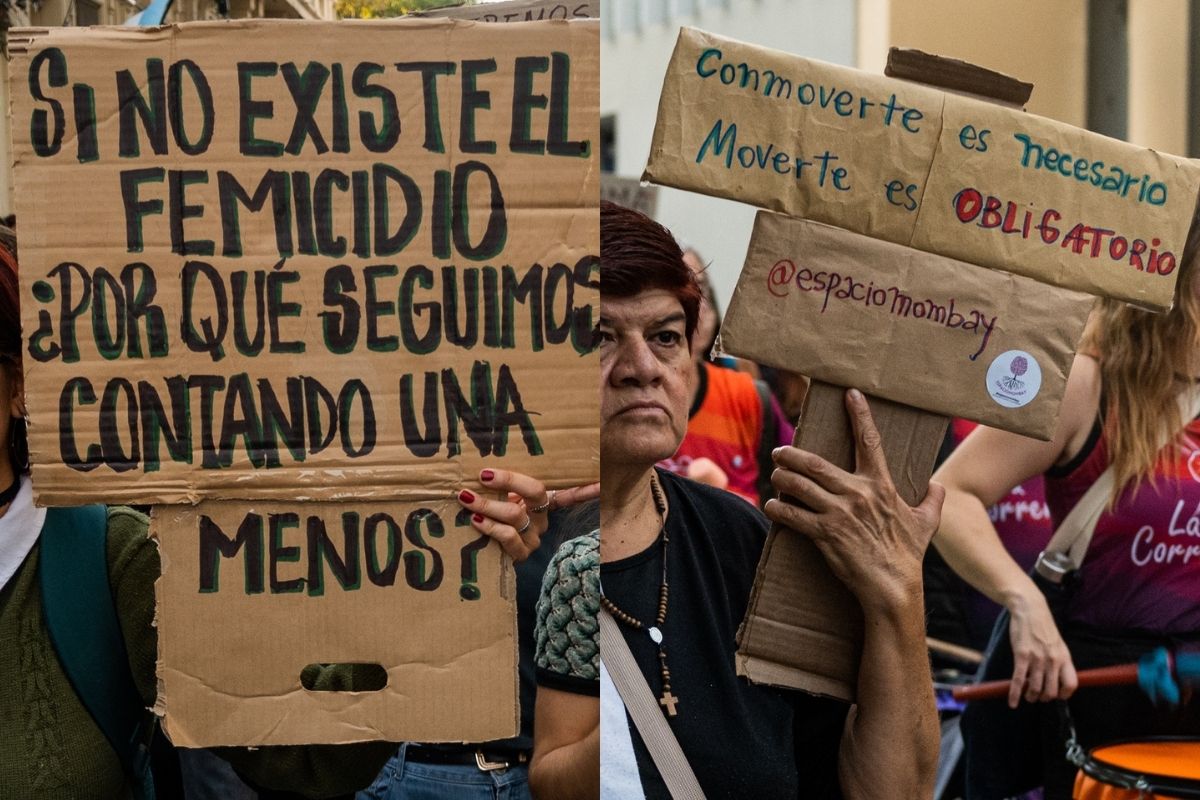 SI NO EXISTE EL
FEMICIDIO
¿POR QUÉ SEGUIMOS
CONTANDO UNA
MENOS?
Conmoverte es necesario
Moverte es OBLIGATORIO
@espaciomombay
ESPACIOMOMBAY
La
Corre